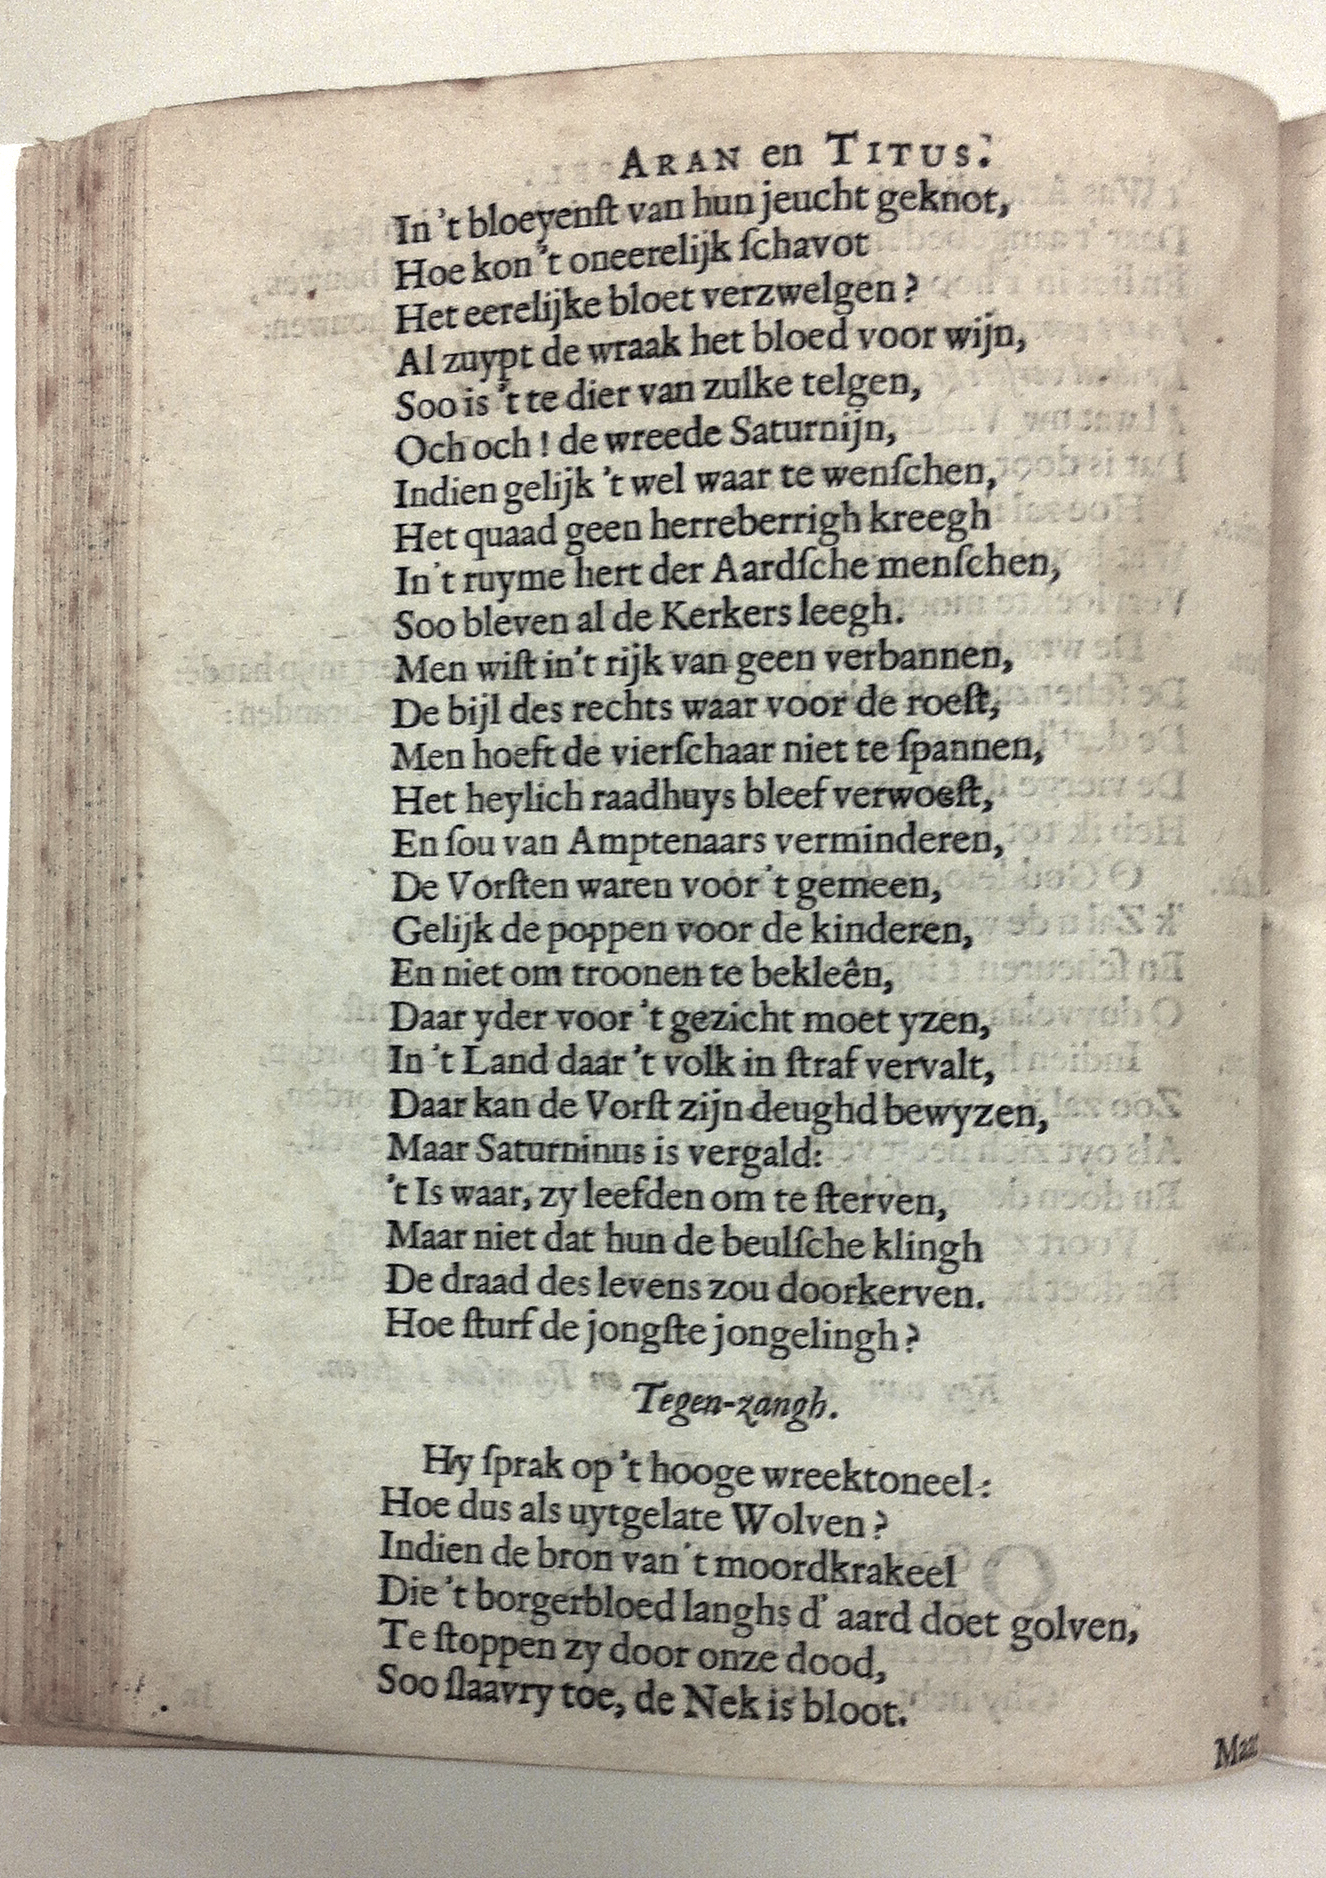 ARAN en TITUS.
In 't bloeyenſt van hun jeucht geknot,
Hoe kon 't oneerelijk ſchavot
Het eerelijke bloet verzwelgen?
Al zuypt de wraak het bloed voor wijn,
Soo is 't te dier van zulke telgen,
Och och! de wreede Saturnijn,
Indien gelijk 't wel waar te wenſchen,
Het quaad geen herreberrigh kreegh
In 't ruyme hert der Aardſche menſchen,
Soo bleven al de Kerkers leegh.
Men wiſt in't rijk van geen verbannen,
De bijl des rechts waar voor de roeſt,
Men hoeft de vierſchaar niet te ſpannen,
Het heylich raadhuys bleef verwoeſt,
En ſou van Amptenaars verminderen,
De Vorſten waren voor 't gemeen,
Gelijk de poppen voor de kinderen,
En niet om troonen te bekleên,
Daar yder voor 't gezicht moet yzen,
In 't Land daar 't volk in ſtraf vervalt,
Daar kan de Vorſt zijn deughd bewyzen,
Maar Saturninus is vergald:
't Is waar, zy leefden om te ſterven,
Maar niet dat hun de beulſche klingh
De draad des levens zou doorkerven.
Hoe ſturf de jongſte jongelingh?
Tegen-zangh.
Hy ſprak op 't hooge wreektoneel:
Hoe dus als uytgelate Wolven?
Indien de bron van 't moordkrakeel
Die 't borgerbloed langhs d' aard doet golven,
Te ſtoppen zy door onze dood,
Soo ſlaavry toe, de Nek is bloot.
Maar